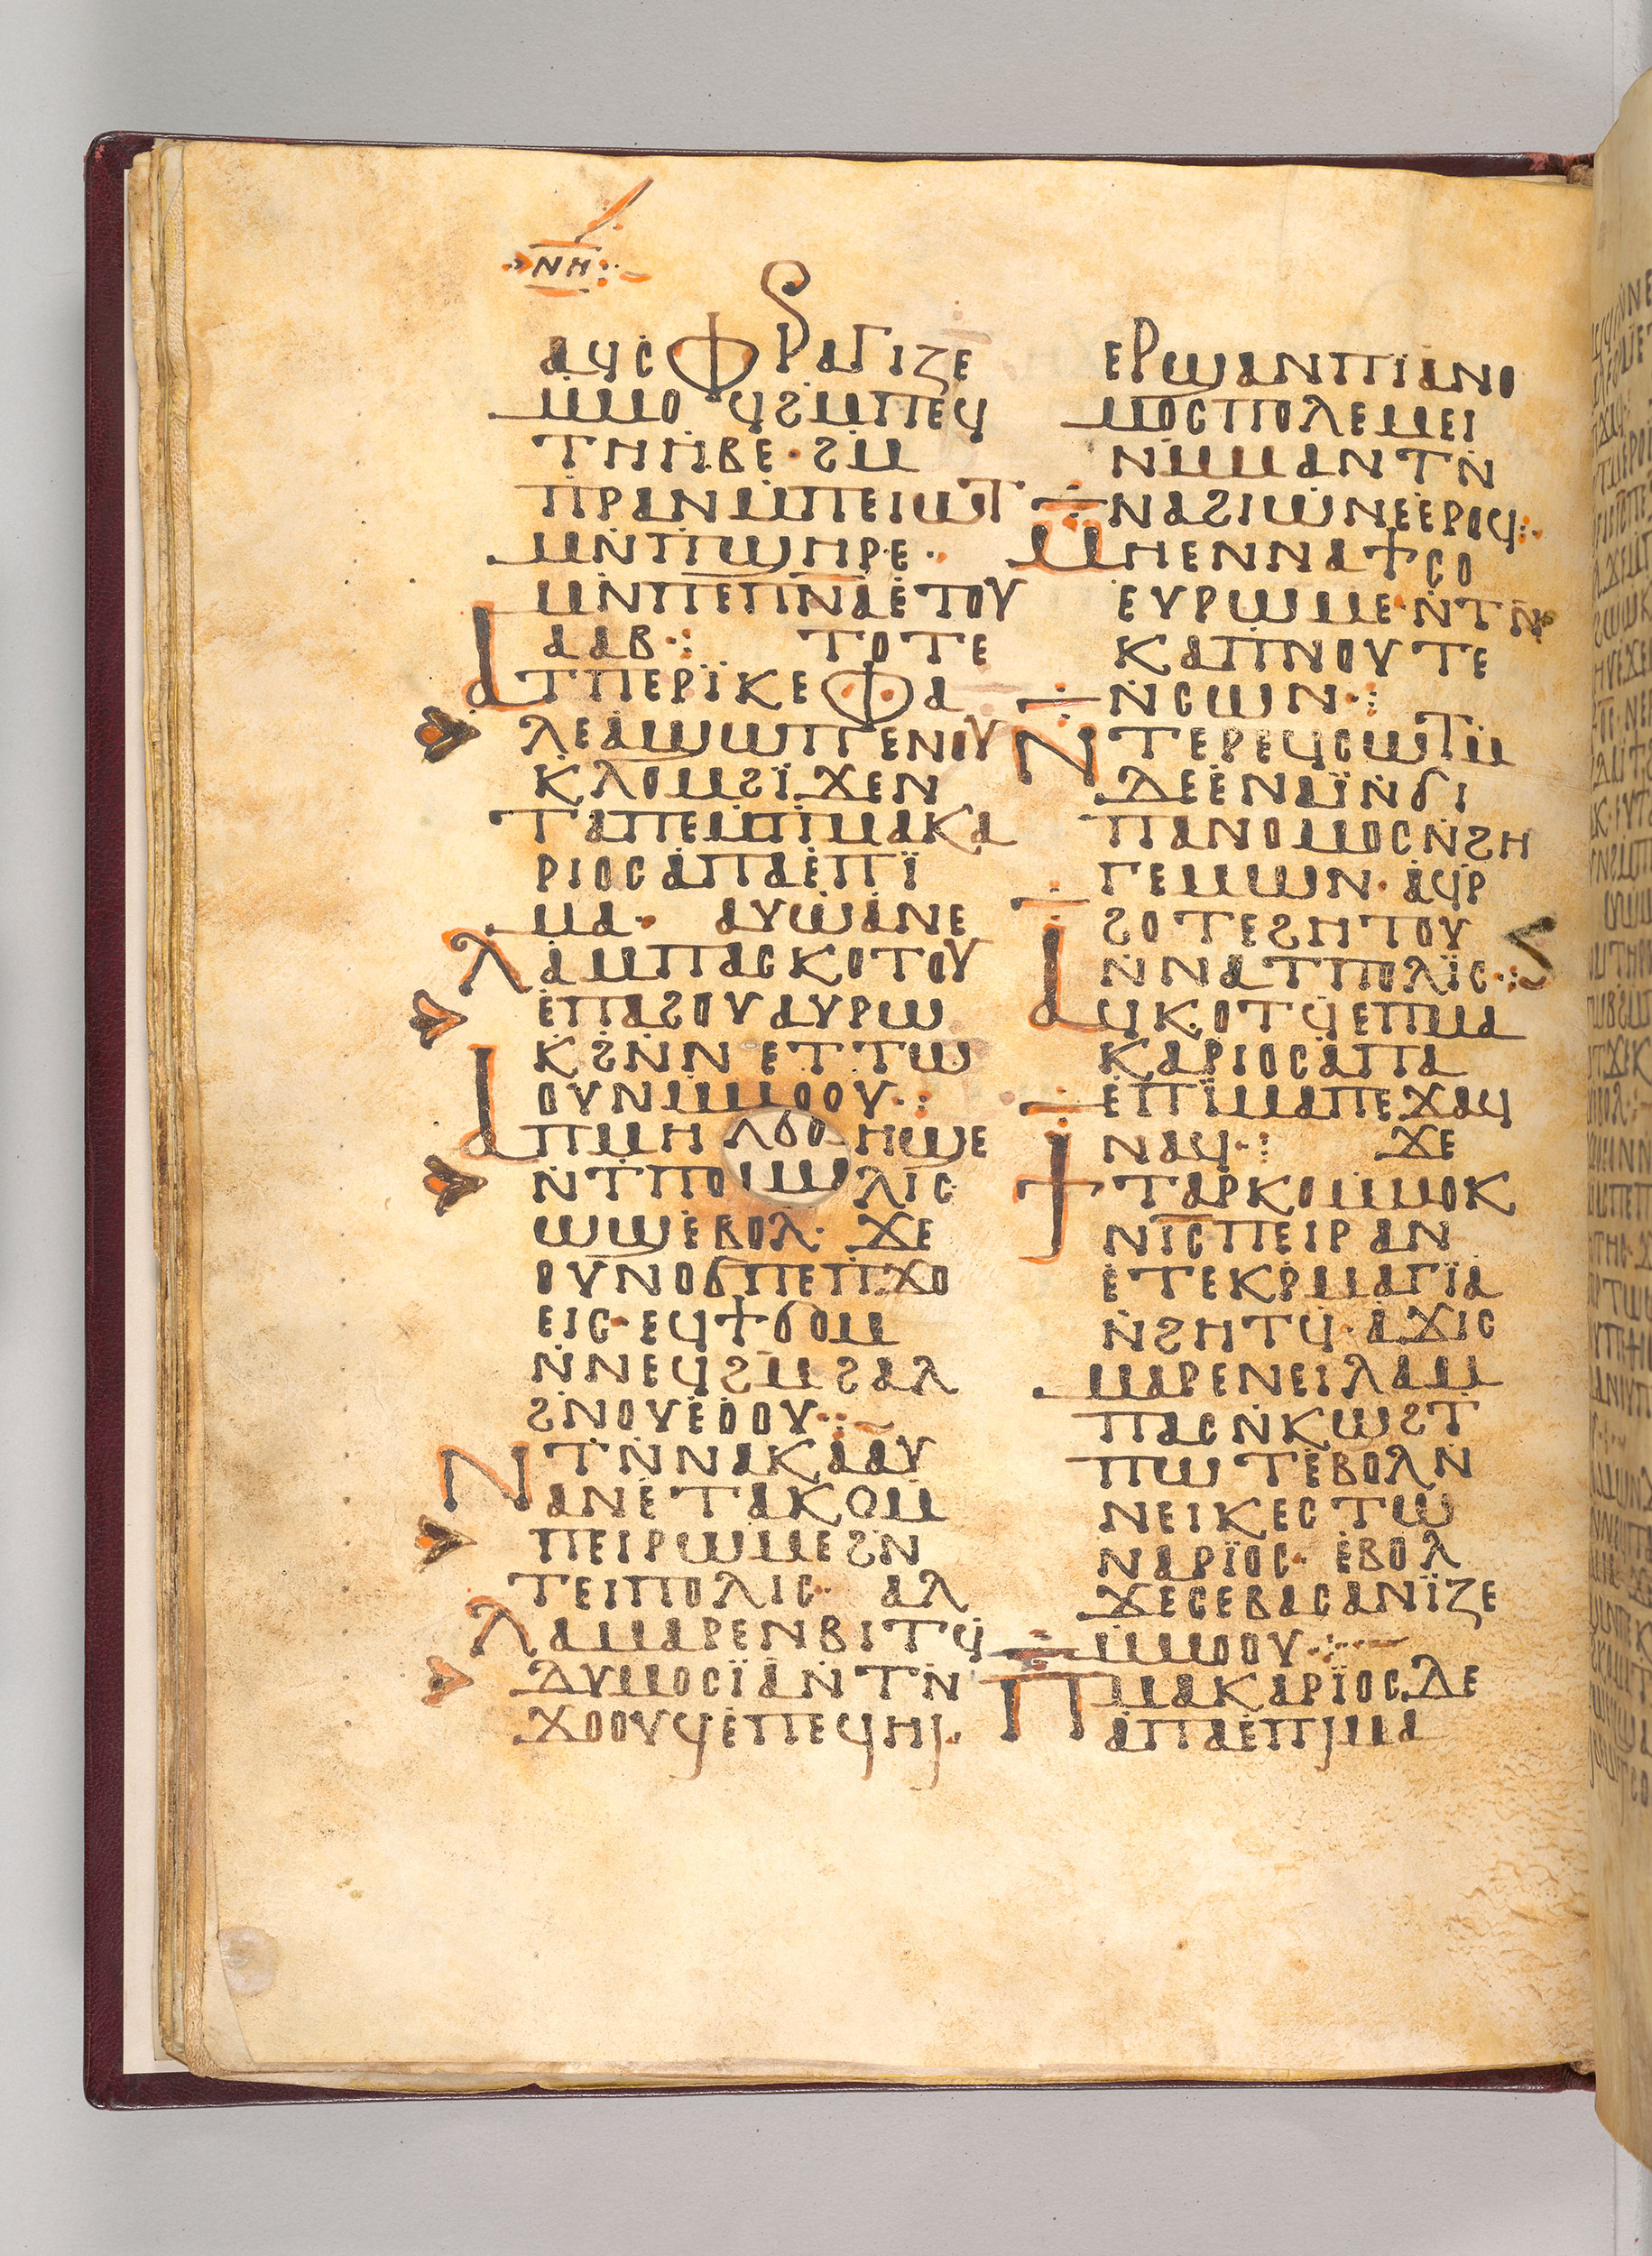 ⲛⲏ
ⲁϥⲥⲫⲣⲁⲅⲓⲍⲉ
ⲙⲙⲟϥϩⲙⲡⲉϥ
ⲧⲏⲏⲃⲉ· ϩⲙ
ⲡⲣⲁⲛⲙⲡⲉⲓⲱⲧ
ⲙⲛⲡϣⲏⲣⲉ·
ⲙⲛⲡⲉⲡ̅ⲛ̅ⲁ̅ⲉⲧⲟⲩ
ⲁⲁⲃ·⁝ ⲧⲟⲧⲉ
ⲁⲧⲡⲉⲣⲓ̈ⲕⲉⲫⲁ
ⲗⲉⲁϣⲱⲡⲉⲛⲟⲩ
ⲕⲗⲟⲙϩⲓ̈ϫⲉⲛ
ⲧⲁⲡⲉⲙⲡⲙⲁⲕⲁ
ⲣⲓⲟⲥⲁⲡⲁⲉⲡⲓ̈
ⲙⲁ· ⲁⲩⲱⲁⲛⲉ
ⲗⲁⲙⲡⲁⲥⲕⲟⲧⲟⲩ
ⲉⲡⲁϩⲟⲩⲁⲩⲣⲱ
ⲕϩⲛⲛⲉⲧⲧⲱ
ⲟⲩⲛⲙⲙⲟⲟⲩ·⁝
ⲁⲡⲙⲏⲏϣⲉ
ⲛⲧⲡⲟⲗⲓⲥ
ⲱϣⲉⲃⲟⲗ· ϫⲉ
ⲟⲩⲛⲟϭⲡⲉⲡϫⲟ
ⲉⲓⲥ·ⲉϥϯϭⲟⲙ
ⲛⲛⲉϥϩⲙϩⲁⲗ
ϩⲛⲟⲩⲉⲟⲟⲩ·⁝
ⲛⲧⲛⲛⲁⲕⲁⲁⲩ
ⲁⲛⲉⲧⲁⲕⲟⲙ
ⲡⲉⲓⲣⲱⲙⲉϩⲛ
ⲧⲉⲓⲡⲟⲗⲓⲥ· ⲁⲗ
ⲗⲁⲙⲁⲣⲉⲛⲃⲓⲧϥ
ⲇⲩⲙⲟⲥⲓ̈ⲁⲛⲧⲛ
ϫⲟⲟⲩϥⲉⲡⲉϥⲏⲓ·
ⲉⲣϣⲁⲛⲡⲓⲁⲛⲟ
ⲙⲟⲥⲡⲟⲗⲉⲙⲉⲓ
ⲛⲙⲙⲁⲛⲧⲛ
ⲛⲁϩⲓⲱⲛⲉⲉⲣⲟϥ⁝·
ⲙⲏⲉⲛⲛⲁϯⲥⲟ
ⲉⲩⲣⲱⲙⲉ·ⲛⲧⲛ
ⲕⲁⲡⲛⲟⲩⲧⲉ
ⲛⲥⲱⲛ·⁝
ⲛⲧⲉⲣⲉϥⲥⲱⲧⲙ
ⲇⲉⲉⲛⲁⲓ̈ⲛϭⲓ
ⲡⲁⲛⲟⲙⲟⲥⲛϩⲏ
ⲅⲉⲙⲱⲛ· ⲁϥⲣ
ϩⲟⲧⲉϩⲏⲧⲟⲩ
ⲛⲛⲁⲧⲡⲟⲗⲓ̈ⲥ·⁝
ⲁϥⲕⲟⲧϥⲉⲡⲙⲁ
ⲕⲁⲣⲓⲟⲥⲁⲡⲁ
ⲉⲡⲓ̈ⲙⲁⲡⲉϫⲁϥ
ⲛⲁϥ·⁝ ϫⲉ
ϯⲧⲁⲣⲕⲟⲙⲙⲟⲕ
ⲛⲓ̅ⲥ̅ⲡⲉⲓⲣⲁⲛ
ⲉⲧⲉⲕⲣⲙⲁⲅⲓ̈ⲁ
ⲛϩⲏⲧϥ·ⲁϫⲓⲥ
ⲙⲁⲣⲉⲛⲉⲓⲗⲁⲙ
ⲡⲁⲥⲛⲕⲱϩⲧ
ⲡⲱⲧⲉⲃⲟⲗⲛ
ⲛⲉⲓⲕⲉⲥⲧⲱ
ⲛⲁⲣⲓ̈ⲟⲥ· ⲉⲃⲟⲗ
ϫⲉⲥⲉⲃⲁⲥⲁⲛⲓ̈ⲍⲉ
ⲙⲙⲟⲟⲩ·⁝
ⲡⲙⲁⲕⲁⲣⲓ̈ⲟⲥⲇⲉ
ⲁⲡⲁⲉⲡⲓⲙⲁ